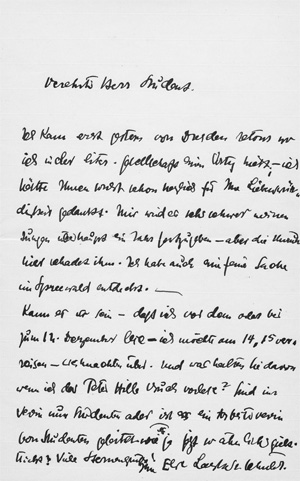 Verehrter Herr Student.
Ich kam erst gestern von Dresden retour wo
ich in der liter. Gesellschaft einen Vortrag hielt, – ich
hätte Ihnen sonst schon herzlich für Ihre Liebenswür-
digkeit gedankt. Mir wird es sehr schwer meinen
Jungen überhaupt ein Jahr fortzugeben – aber die
hier schadet ihm. Ich habe auch eine feine Sache
im Spreewald entdeckt. –
Kann es so sein – daß ich vor dem oder bei
zum 12. Dezember lese – ich möchte am 14, 15 ver-
reisen – Weihnachten über. Und was halten Sie davon
wenn ich das Peter Hille Buch vorlese? Sind im
Verein nur Studenten oder ist es ein Arbeiterverein
von Studenten geleitet
Viele Else Lasker-Schüler.